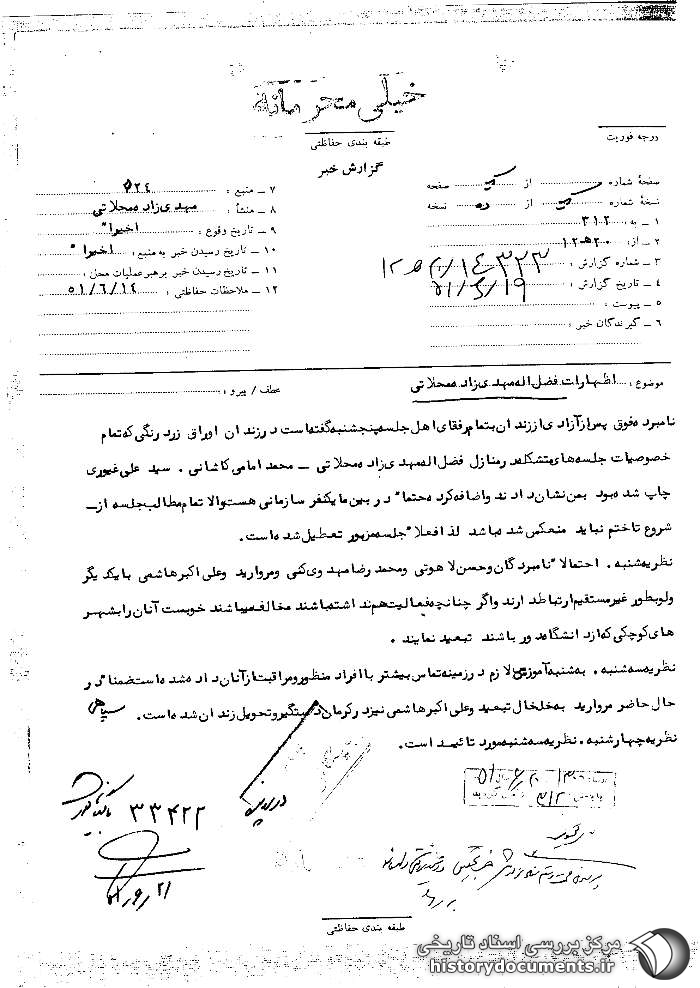 خیلی محرمانه
طبقه بندی حفاظتی
گزارش خبر
درجه فوریت
صفحهٔ شماره از صفحه
نسخهٔ شماره از ده نسخه
۱ ـ به : ۳۱۲
۲ ـ از : ۲۰ هـ ۱۲
۳ ـ شماره گزارش : ۱۴۳۲۳ / ۲۰ هـ ۱۲
۴ ـ تاریخ گزارش : ۵۱/۶/۱۹
۵ ـ پیوست :
۶ ـ گیرندگان خبر :
۷ ـ منبع :
۸ ـ منشأ : مهدی‌زاد محلاتی
۹ ـ تاریخ وقوع : اخیرا"
۱۰ ـ تاریخ رسیدن خبر به منبع : اخیرا"
۱۱ ـ تاریخ رسیدن خبر برهبر عملیات محل :
۱۲ ـ ملاحظات حفاظتی : ۵۱/۶/۱۴
موضوع : اظهارات فضل‌اله مهدی‌زاد محلاتی
عطف / پیرو :
نامبرده فوق پس از آزادی از زندان بتمام رفقای اهل جلسه پنجشنبه گفته است در زندان اوراق زرد رنگی که تمام
خصوصیات جلسه‌های متشکله در منازل فضل‌اله مهدی‌زاد محلاتی ـ محمد امامی کاشانی . سید علی غیوری
چاپ شده بود بمن نشان دادند واضافه کرد حتما" در بین ما یکنفر سازمانی هست والا تمام مطالب جلسه از ـ
شروع تا ختم نباید منعکس شده باشد لذا فعلا" جلسه مزبور تعطیل شده است .
نظریه شنبه . احتمالا" نامبردگان وحسن لاهوتی ومحمد رضا مهدوی کنی ومروارید وعلی اکبر هاشمی با یکدیگر
ولو بطور غیر مستقیم ارتباط دارند واگر چنانچه فعالیت هم نداشته باشند مخالف میباشند خوبست آنان را بشهر
های کوچکی که از دانشگاه دور باشند تبعید نمایند .
نظریه سه‌شنبه . به شنبه آموزش لازم در زمینه تماس بیشتر با افراد منظور ومراقبت از آنان داده شده است ضمنا" در
حال حاضر مروارید به خلخال تبعید وعلی اکبر هاشمی نیز در کرمان دستگیر وتحویل زندان شده است . سپاهی
نظریه چهارشنبه . نظریه سه‌شنبه مورد تائید است .
۳۳۴۲۲
طبقه بندی حفاظتی
مرکز بررسی اسناد تاریخی
historydocuments.ir